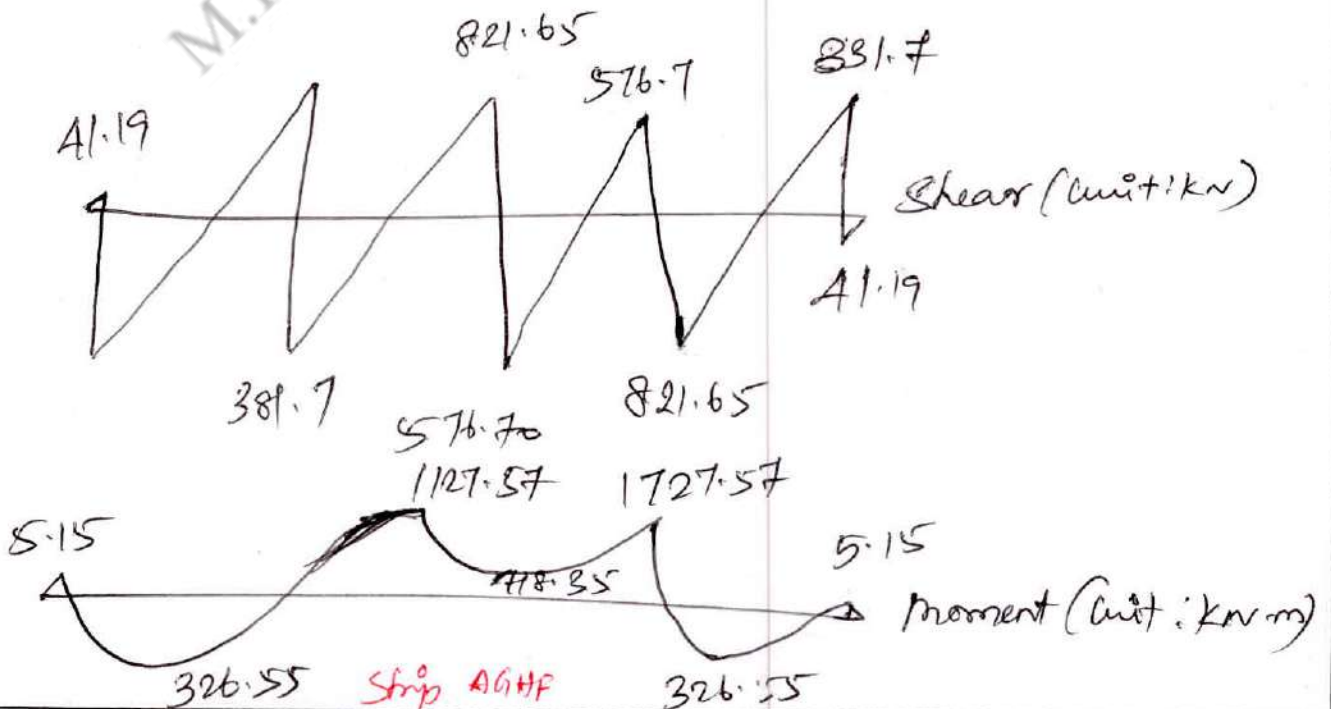 M.
821.65
576.7
831.7
41.19
Shear (unit: kN)
41.19
381.7
821.65
576.70
1127.57
1727.57
5.15
5.15
718.35
Moment (unit: kN-m)
326.55
Strip AGHF
326.55